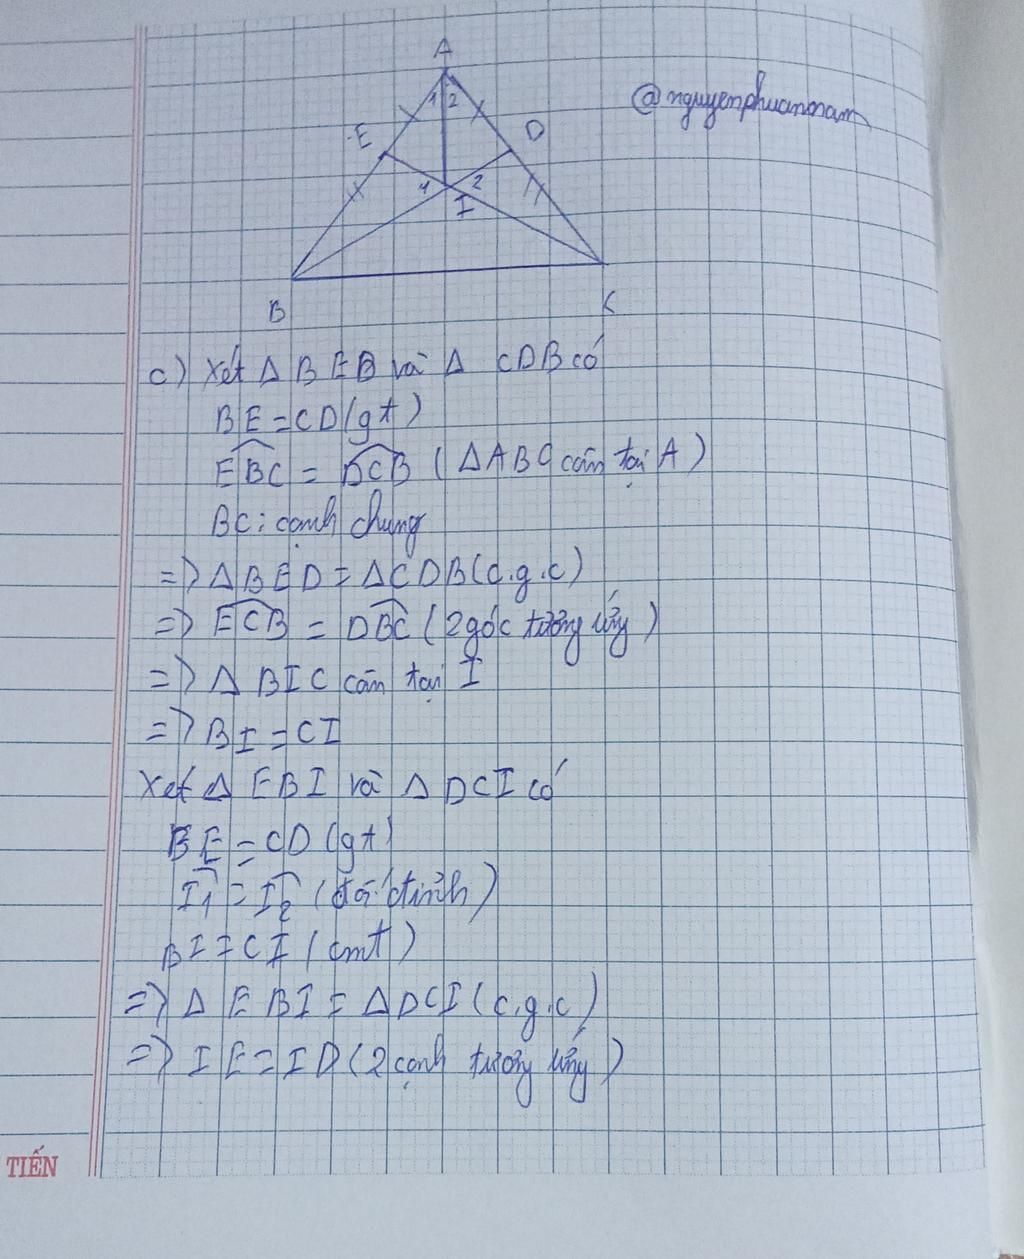 A
@nguyenphuannam
1 2
E
D
1 2
I
B
C
c) Xét Δ BEB và Δ CDB có
BE = CD (gt)
EBC = DCB (ΔABC cân tại A)
BC: cạnh chung
=> ΔBED = ΔCDB (c.g.c)
=> ECB = DBC (2 góc tương ứng)
=> Δ BIC cân tại I
=> BI = CI
Xét Δ EBI và Δ DCI có
BE = CD (gt)
I1 = I2 (đối đỉnh)
BI = CI (cmt)
=> Δ EBI = ΔDCI (c.g.c)
=> IE = ID (2 cạnh tương ứng)
TIẾN